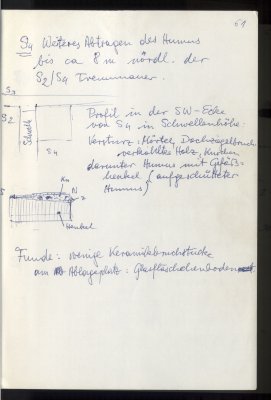 61
S4 Weiteres Abtragen des Humus
bis ca 8 m nördl. der
S2/S4 Trennmauer.
S3
S2
Schwelle
S4
Profil in der SW-Ecke
von S4 in Schwellenhöhe:
Versturz: Mörtel, Dachziegelbruch
verkohltes Holz, Knochen
darunter Humus mit Gefäß-
henkel (aufgeschütteter
Humus)
Kn
N
Z
S
Henkel
Funde: wenige Keramikbruchstücke
am Ablageplatz: Glasfläschchenboden